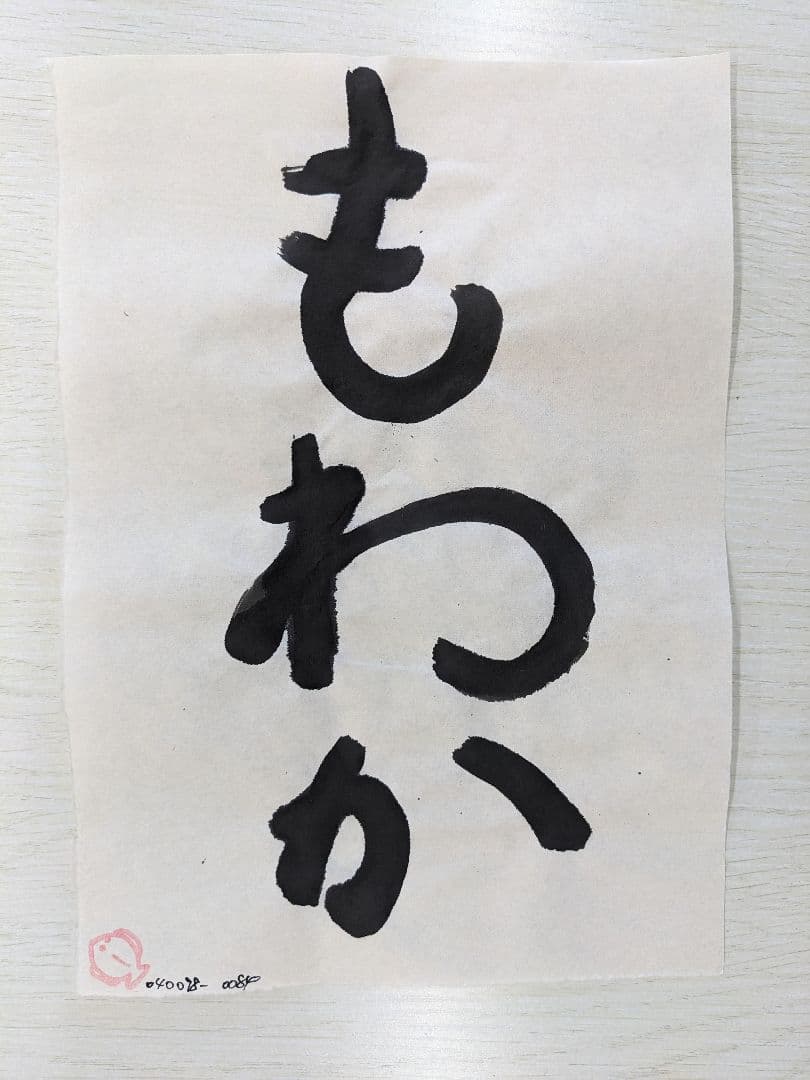 もわか
040028- 0084